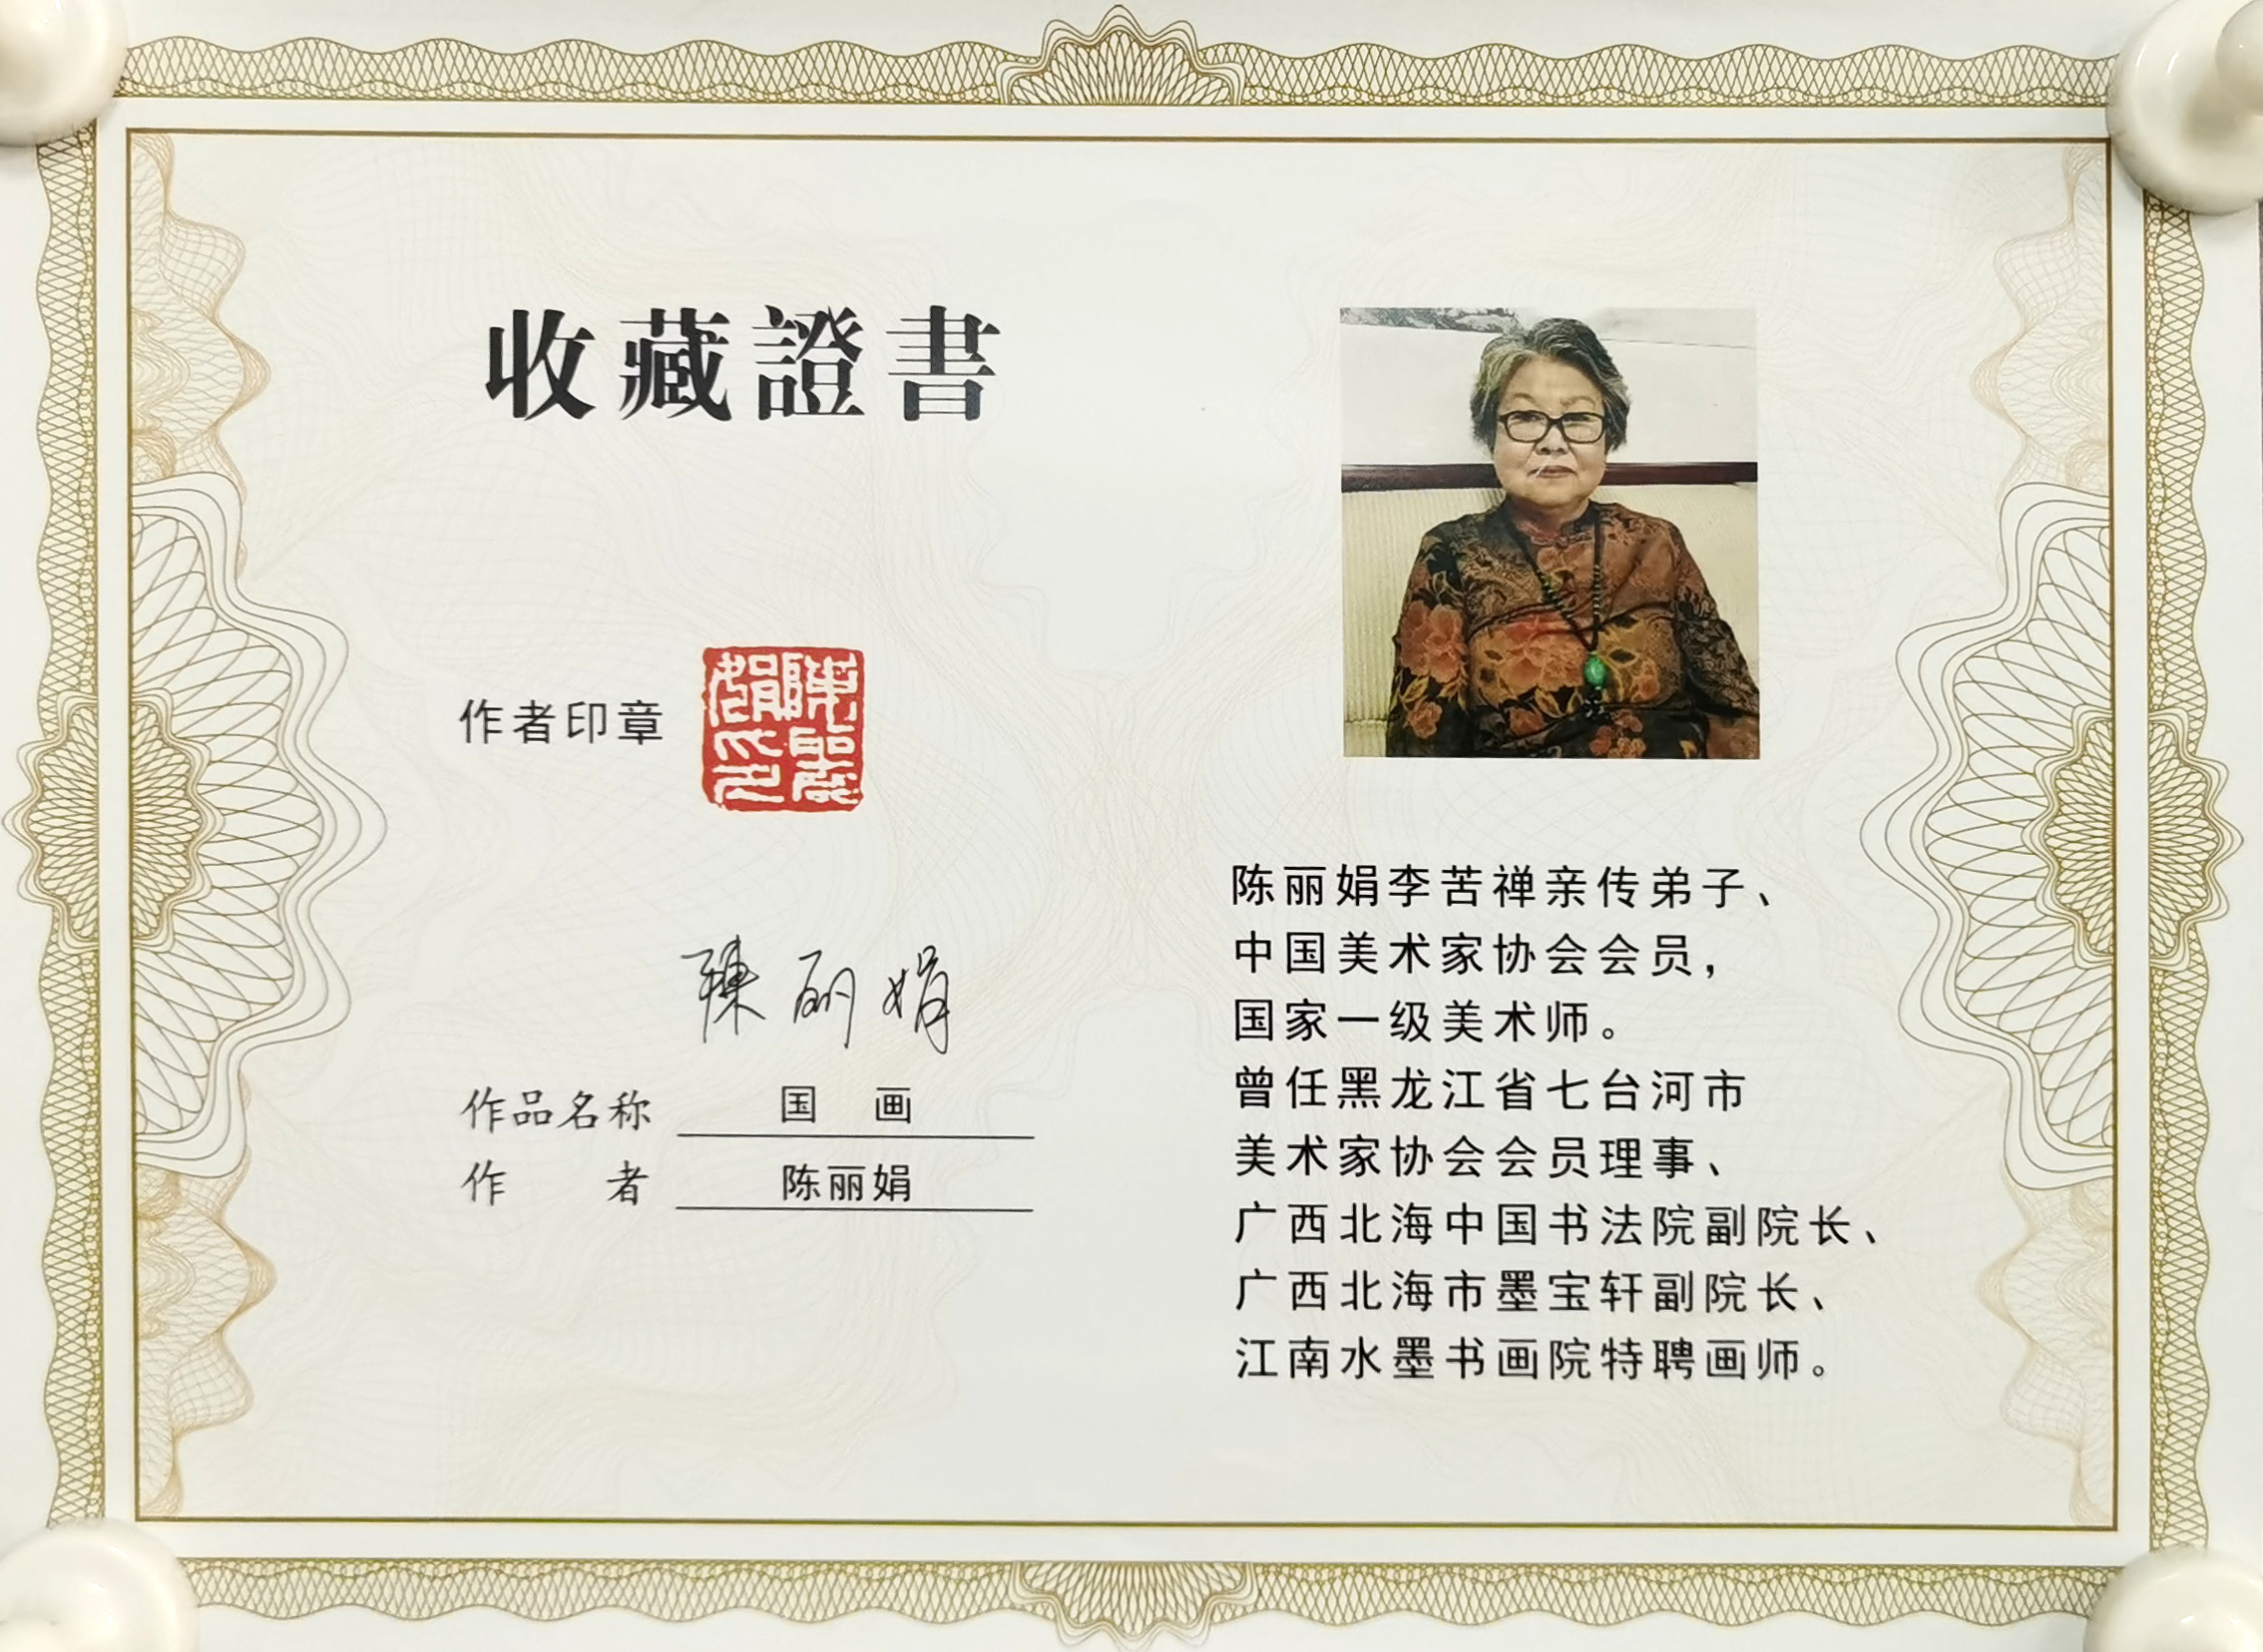 收藏證書
作者印章
陳丽娟
作品名称 国 画
作 者 陈丽娟
陈丽娟李苦禅亲传弟子、
中国美术家协会会员，
国家一级美术师。
曾任黑龙江省七台河市
美术家协会会员理事、
广西北海中国书法院副院长、
广西北海市墨宝轩副院长、
江南水墨书画院特聘画师。